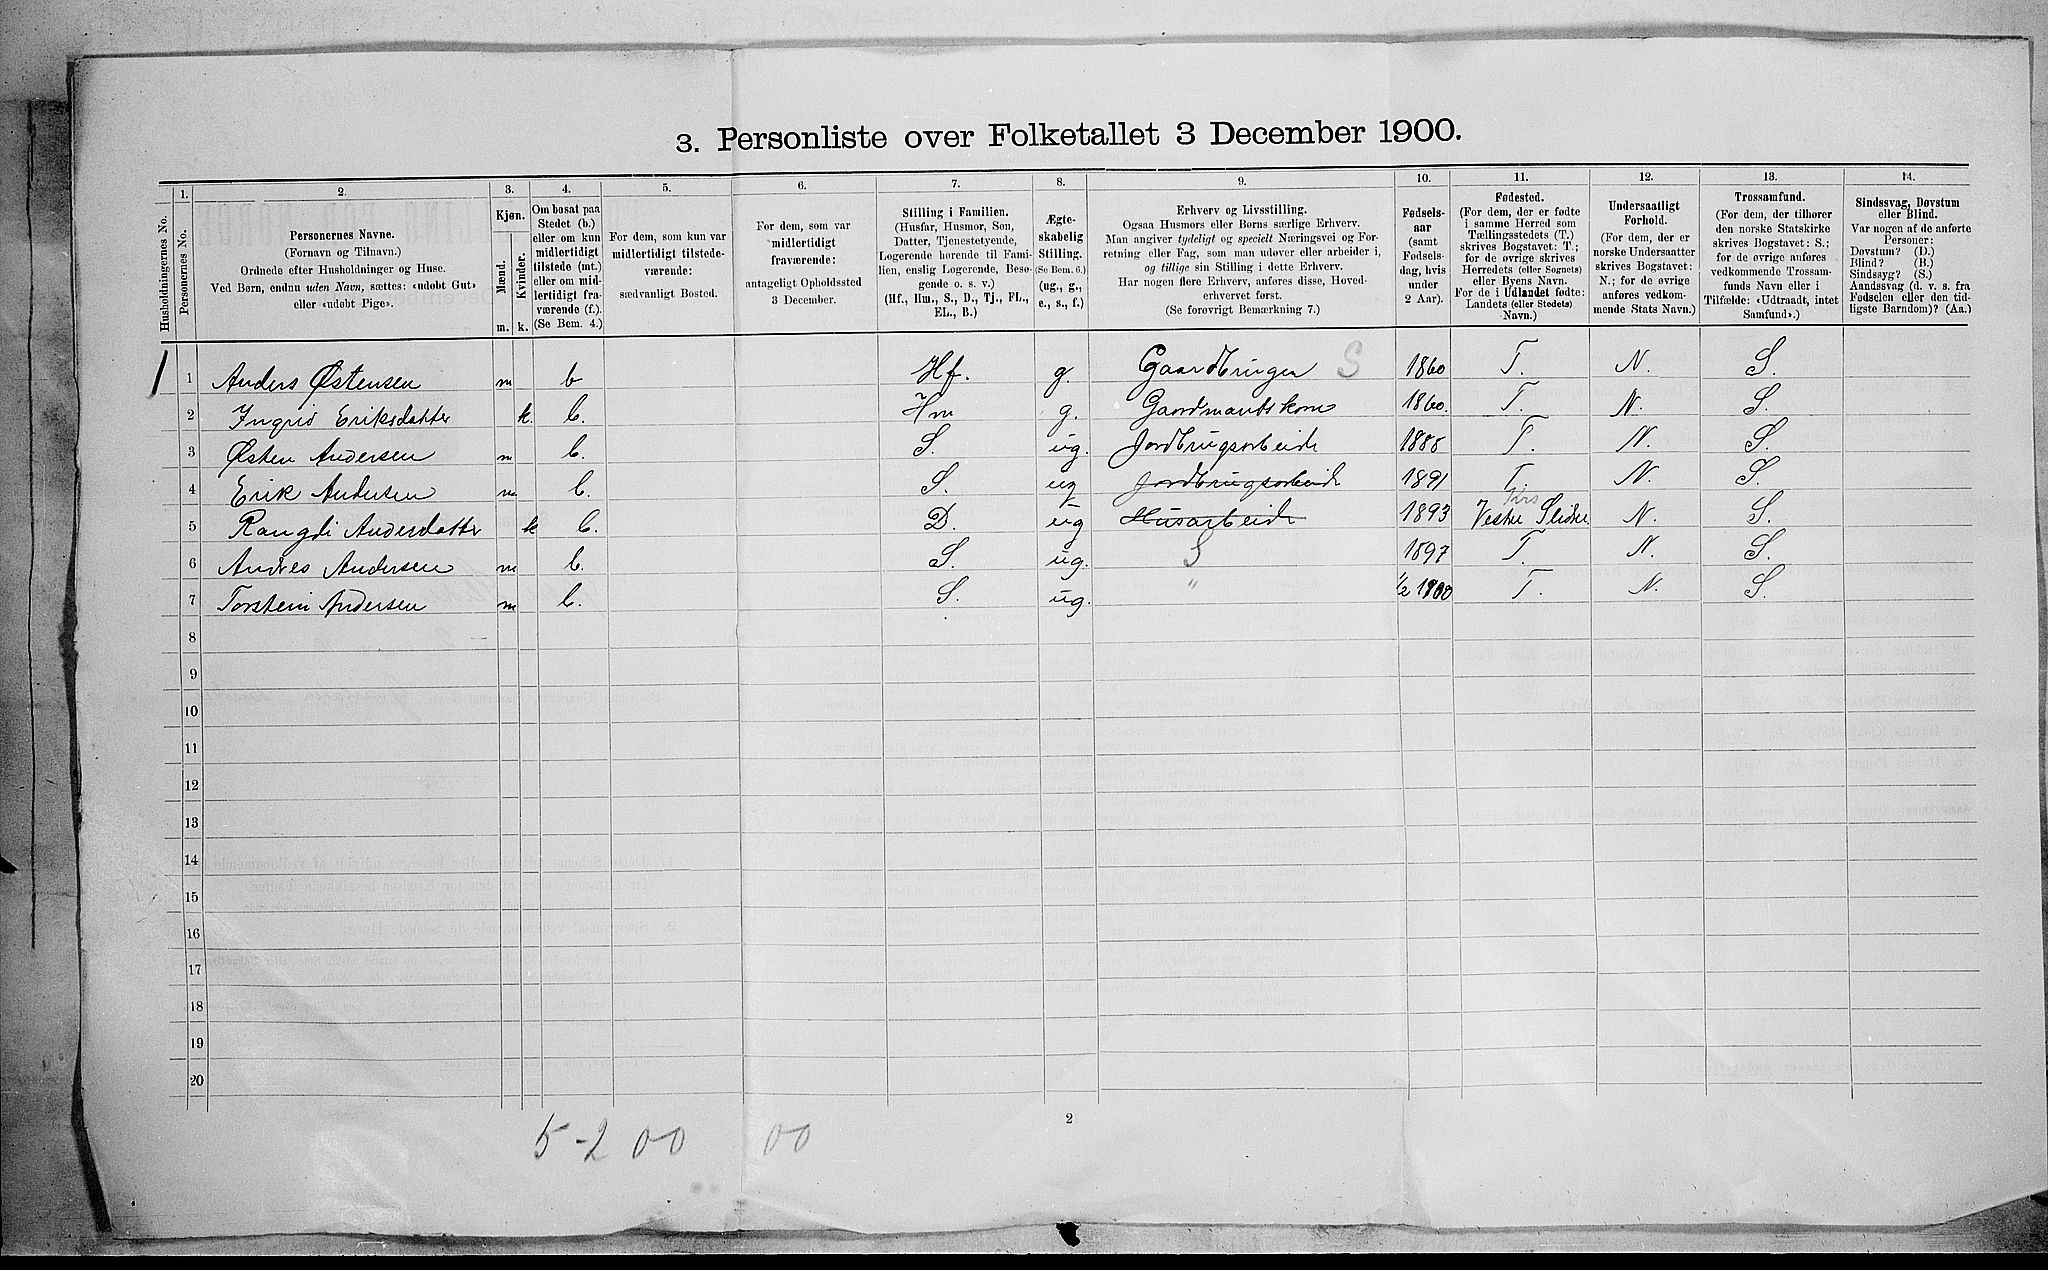 3. Personliste over Folketallet 3 December 1900.
Husholdningernes No.
1.
Personernes No.
2.
Personernes Navne.
(Fornavn og Tilnavn.)
Ordnede efter Husholdninger og Huse.
Ved Børn, endnu uden Navn, sættes: «udøbt Gut»
eller «udøbt Pige».
3.
Kjøn.
Mænd.
Kvinder.
m.
k.
4.
Om bosat paa
Stedet (b.)
eller om kun
midlertidigt
tilstede (mt.)
eller om mid-
lertidigt fra-
værende (f.).
(Se Bem. 4.)
5.
For dem, som kun var
midlertidigt tilstede-
værende:
sædvanligt Bosted.
6.
For dem, som var
midlertidigt
fraværende:
antageligt Opholdssted
3 December.
7.
Stilling i Familien.
(Husfar, Husmor, Søn,
Datter, Tjenestetyende,
Logerende hørende til Fami-
lien, enslig Logerende, Besø-
gende o. s. v.)
(Hf., Hm., S., D., Tj., FL.,
EL., B.)
8.
Ægte-
skabelig
Stilling.
(Se Bem. 6.)
(ug., g.,
e., s., f.)
9.
Erhverv og Livsstilling.
Ogsaa Husmors eller Børns særlige Erhverv.
Man angiver tydeligt og specielt Næringsvei og For-
retning eller Fag, som man udøver eller arbeider i,
og tillige sin Stilling i dette Erhverv.
Har nogen flere Erhverv, anføres disse, Hoved-
erhvervet først.
(Se forøvrigt Bemærkning 7.)
10.
Fødsels-
aar
(samt
Fødsels-
dag, hvis
under
2 Aar).
11.
Fødested.
(For dem, der er fødte
i samme Herred som
Tællingsstedets (T.)
skrives Bogstavet: T.;
for de øvrige skrives
Herredets (eller Sognets)
eller Byens Navn.
For de i Udlandet fødte:
Landets (eller Stedets)
Navn.)
12.
Undersaatligt
Forhold.
(For dem, der er
norske Undersaatter
skrives Bogstavet:
N.; for de øvrige
anføres vedkom-
mende Stats Navn.)
13.
Trossamfund.
(For dem, der tilhører
den norske Statskirke
skrives Bogstavet: S.;
for de øvrige anføres
vedkommende Trossam-
funds Navn eller i
Tilfælde: «Udtraadt, intet
Samfund».)
14.
Sindssvag, Døvstum
eller Blind.
Var nogen af de anførte
Personer:
Døvstum? (D.)
Blind? (B.)
Sindssyg? (S.)
Aandssvag (d. v. s. fra
Fødselen eller den tid-
ligste Barndom)? (Aa.)
1 1 Anders Østensen m b Hf. g. Gaardbruger S 1860 T. N. S.
2 Ingrid Eriksdatter k. b. Hm g. Gaardmandskone 1860. T. N. S.
3 Østen Andersen m b. S. ug. Jordbrugsarbeide 1888 T. N. S.
4 Erik Andersen m b. S. ug Jordbrugsarbeide 1891 T. N. S.
5 Rangdi Andersdatter k b. D. ug Husarbeide 1893 Vestre Slidre N. S.
6 Andres Andersen m b. S. ug. S 1897 T. N. S.
7 Torstein Andersen m b. S. ug. " 1/2 1900 T. N. S.
8
9
10
11
12
13
14
15
16
17
18
19
20
2
5-2 00 00